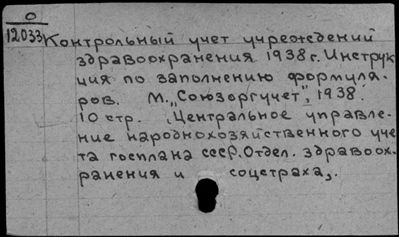 О
12033
Контрольный учет учреждений
здравоохранения 1938 г. Инструк
ция по заполнению формуля-
ров. М. „Союзоргучет", 1938.
10 стр. (Центральное управле-
ние народнохозяйственного уче
та госплана СССР. Отдел. здравоох-
ранения и соцстраха).